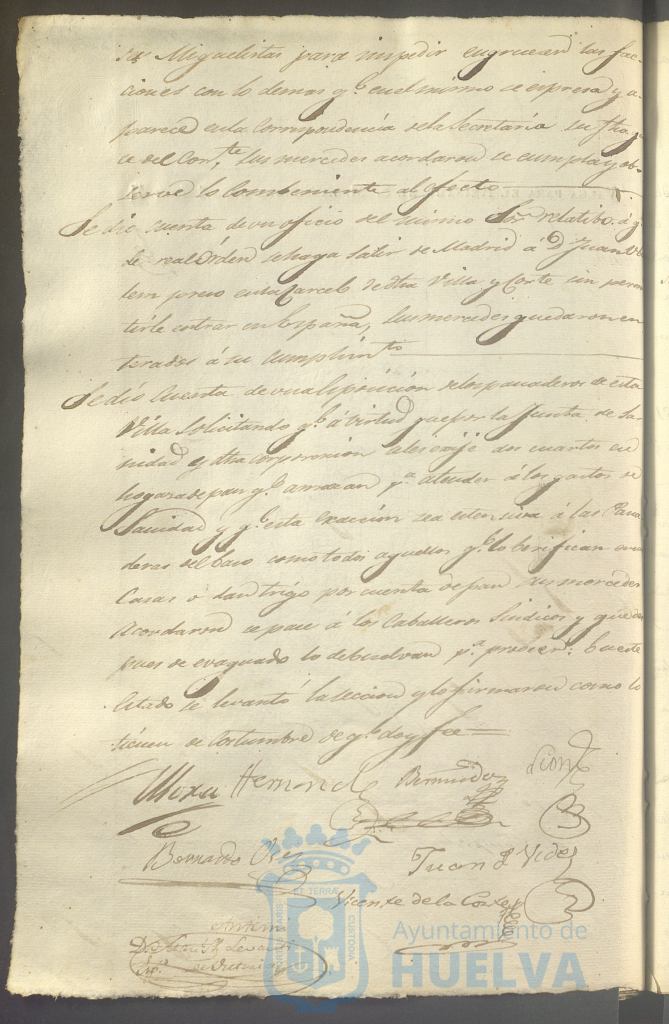 Miguelistas para impedir engruesen las fac-
ciones con lo demas qe. en el mismo se expresa y a-
parece en la Correspondencia de la Secretaría su fha
del Corte. sus mercedes acordaron se cumpla y ob-
serve lo Combeniente al efecto
Se dio cuenta de un oficio del mismo Sor. relatibo á qe
de real Orden se haga salir de Madrid á Dn Juan
preso en la Carcel de dha Villa y Corte sin permi
tirle entrar en España, sus mercedes quedaron en
terados á su cumplimto
Se dio cuenta de una esposicion de los panaderos de esta
Villa Solicitando qe. á virtud que por la Junta de Sa
nidad y dha corporacion se les exije dos cuartos en
hogaza de pan qe. amasan pa. atender á los gastos de
Sanidad y qe. esta exaccion sea estensiva á las Pana
deras del baco como todos aquellos qe. lo berifican en sus
Casas o dan trigo por cuenta de pan sus mercedes
Acordaron se pase á los Caballeros Sindicos y que des
pues de evaquado lo debuelvan pa. proveer: En este
estado se levantó la seccion y lo firmaron como lo
tienen de Costumbre de qe. doy fee
Mora Hernand Bermudez
Bernardo Juan J Vides
Vicente de la Corte
Antemi
ES TERRAE
CUSTODIA
Ayuntamiento de
HUELVA